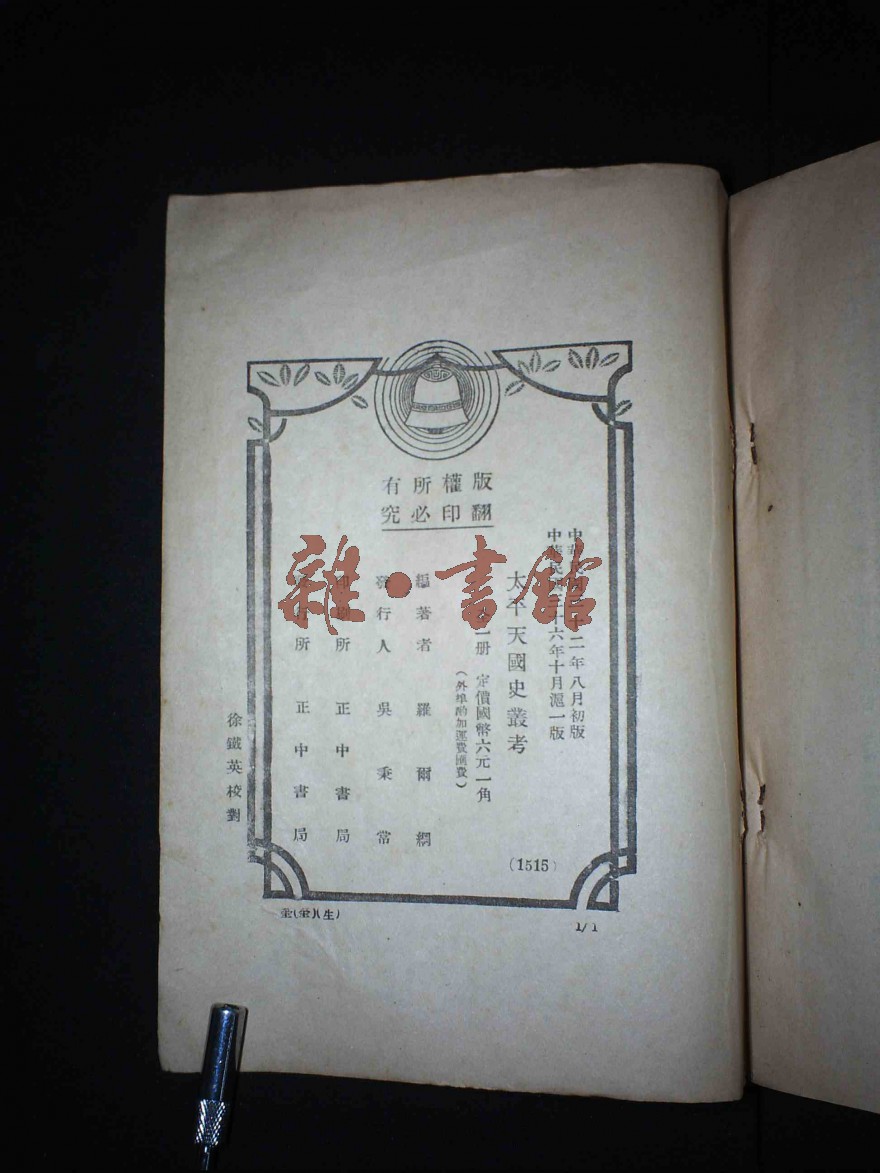 版權所有
翻印必究
中華民國三十二年八月初版
中華民國三十六年十月滬一版
太平天國史叢考
全一册 定價國幣六元一角
(外埠酌加運費匯費)
編著者 羅爾綱
發行人 吳秉常
印刷所 正中書局
發行所 正中書局
(1515)
徐鐵英校對
1/1
雜·書館